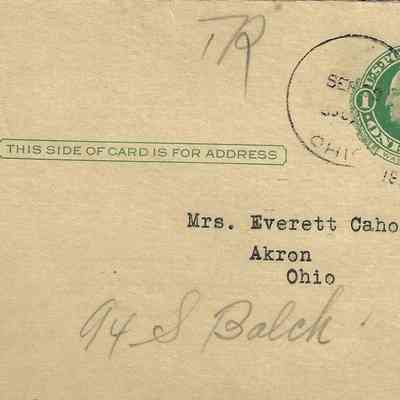 TR
SEP
OHIO
U.S. PO
1
THIS SIDE OF CARD IS FOR ADDRESS
Mrs. Everett Caho
Akron
Ohio
94 S Balch